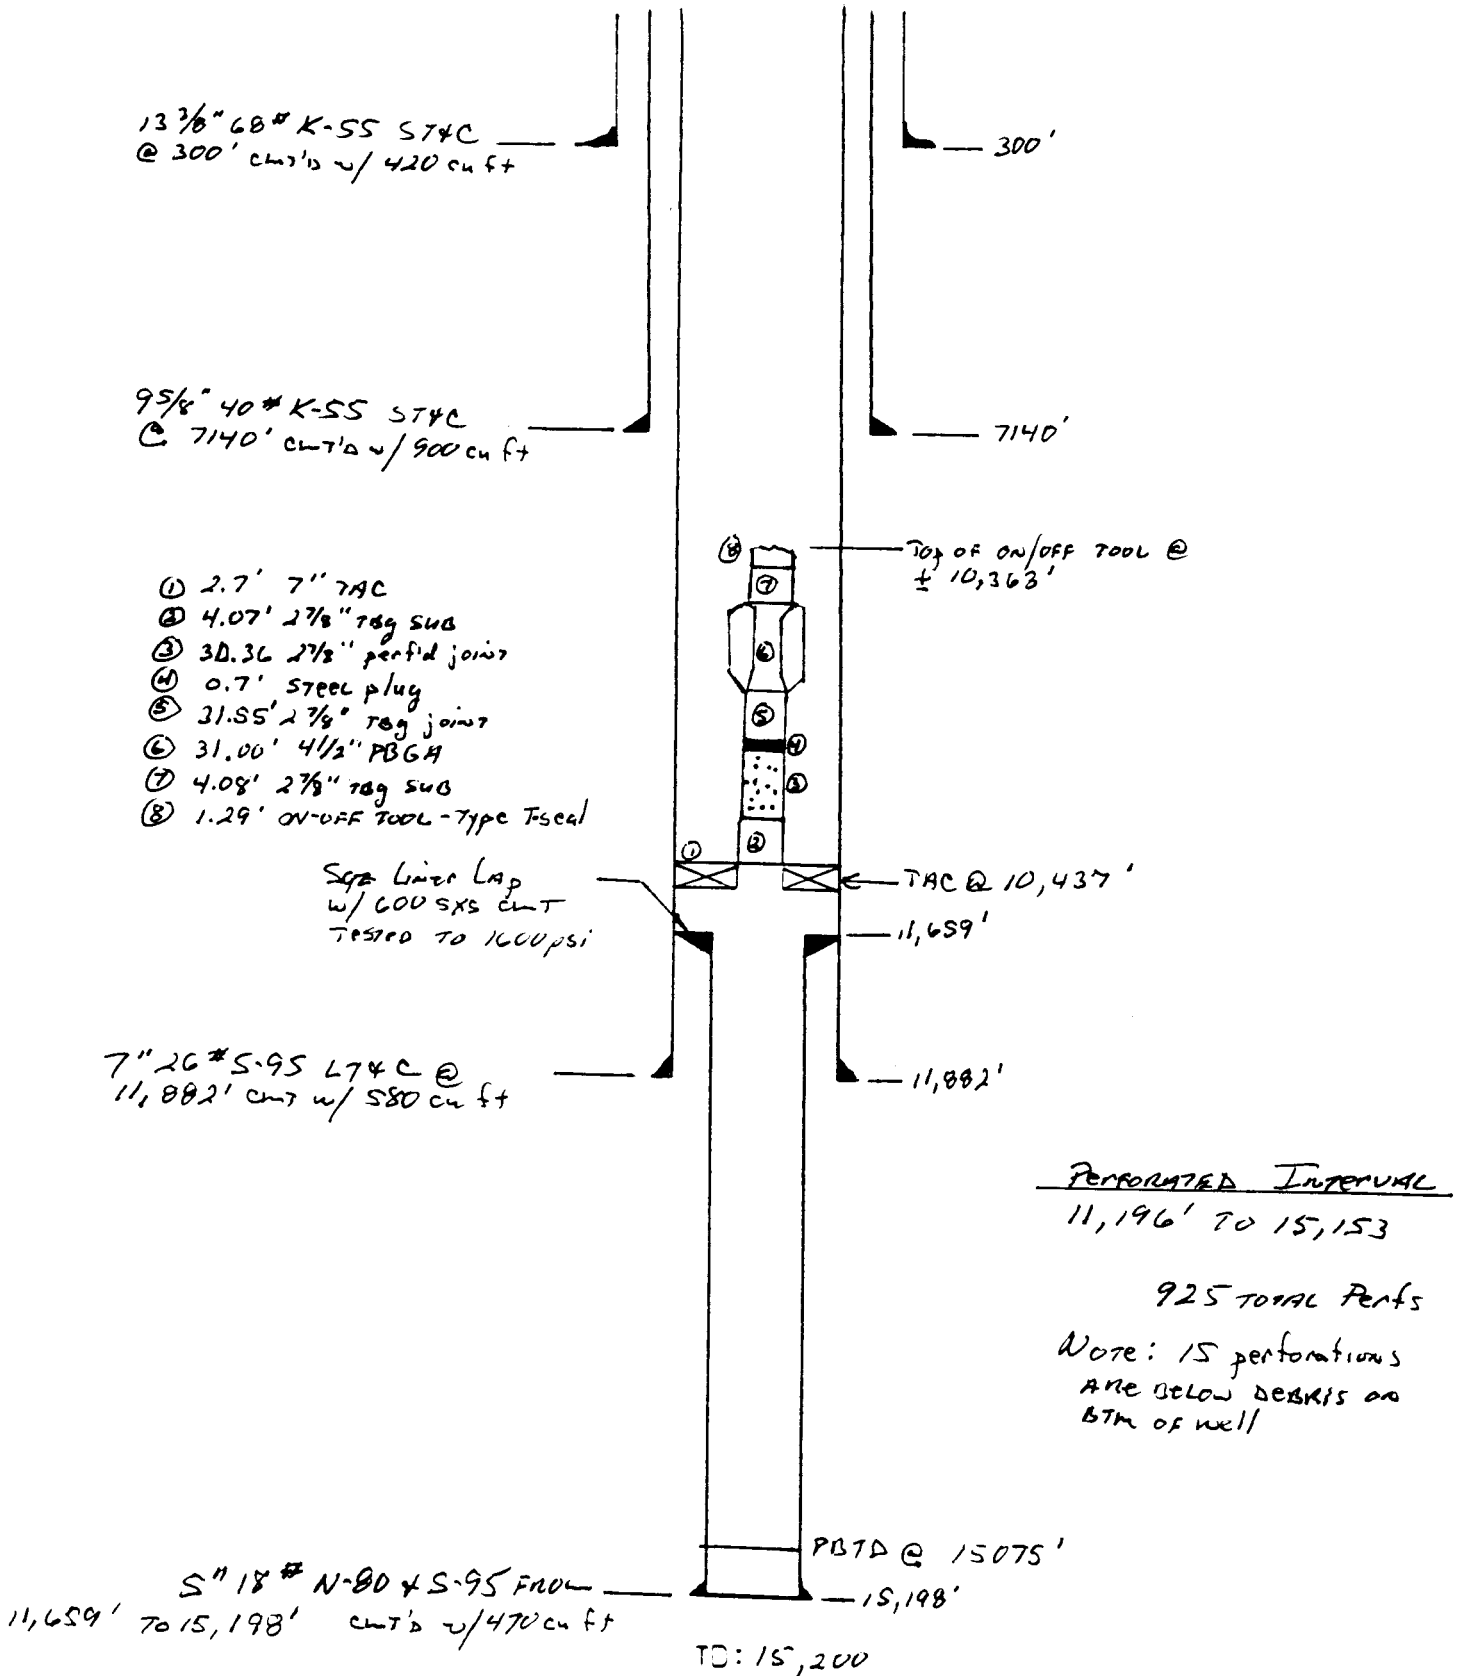 13 3/8" 68# K-55 ST&C
@ 300' cmt'd w/ 420 cu ft
300'
9 5/8" 40# K-55 ST&C
@ 7140' cmt'd w/ 900 cu ft
7140'
⑧
⑦
Top of ON/OFF TOOL @
± 10,363'
① 2.7' 7" TAC
② 4.07' 2 7/8" Tbg SUB
③ 30.36 2 7/8" perf'd joint
④ 0.7' STEEL plug
⑤ 31.55' 2 7/8" Tbg joint
⑥ 31.00' 4 1/2" PBGA
⑦ 4.08' 2 7/8" Tbg SUB
⑧ 1.29' ON-OFF TOOL - Type T-seal
⑥
⑤
④
③
②
①
Sqz Liner Lap
w/ 600 SXS CMT
TESTED TO 1600 psi
TAC @ 10,437'
11,659'
7" 26# S-95 LT&C @
11,882' cmt w/ 580 cu ft
11,882'
PERFORATED INTERVAL
11,196' TO 15,153
925 TOTAL Perfs
NOTE: 15 perforations
ARE BELOW DEBRIS ON
BTM OF well
PBTD @ 15075'
5" 18# N-80 & S-95 FROM
11,659' TO 15,198' cmt'd w/ 470 cu ft
15,198'
TD: 15,200